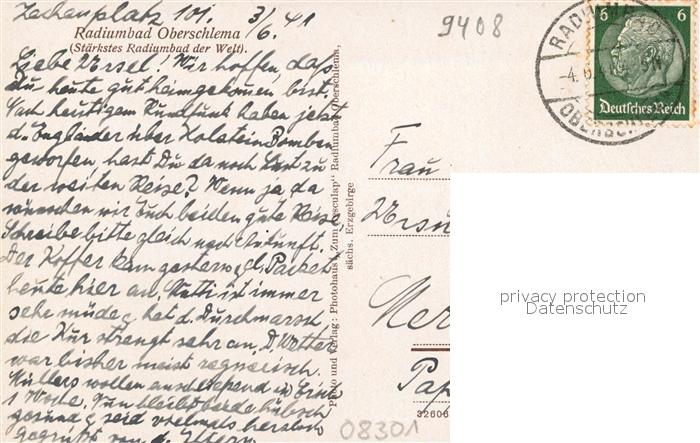 Zechenplatz 101. 3/6. 41
9408
Radiumbad Oberschlema
(Stärkstes Radiumbad der Welt).
Liebe Ursel! Wir hoffen, dass
du heute gut heimgekommen bist.
Nach heutigem Rundfunk haben jetzt
d. Engländer über Holstein Bomben
geworfen, hast Du da noch Lust zu
der weiten Reise? Wenn ja, da
wünschen wir Euch beiden gute Reise,
Schreibe bitte gleich nach Ankunft.
Der Koffer kam gestern, d. Packet
heute hier an. Mutti ist immer
sehr müde, hat d. Durchmarsch,
die Kur strengt sehr an. D. Wetter
war bisher meist regnerisch.
Müllers wollen anschliessend
1 Woche. Nun bleibt beide hübsch
gesund & seid vielmals herzlich
gegrüßt von d. Eltern
Photo und Verlag: Photohaus "Zum Aesculap" Radiumbad Oberschlema,
sächs. Erzgebirge
6 6
Deutsches Reich
RADIUMBAD
-4.6
OBERSCHL
Frau
Ursu
Mer
Pap
32606
08301
privacy protection
Datenschutz